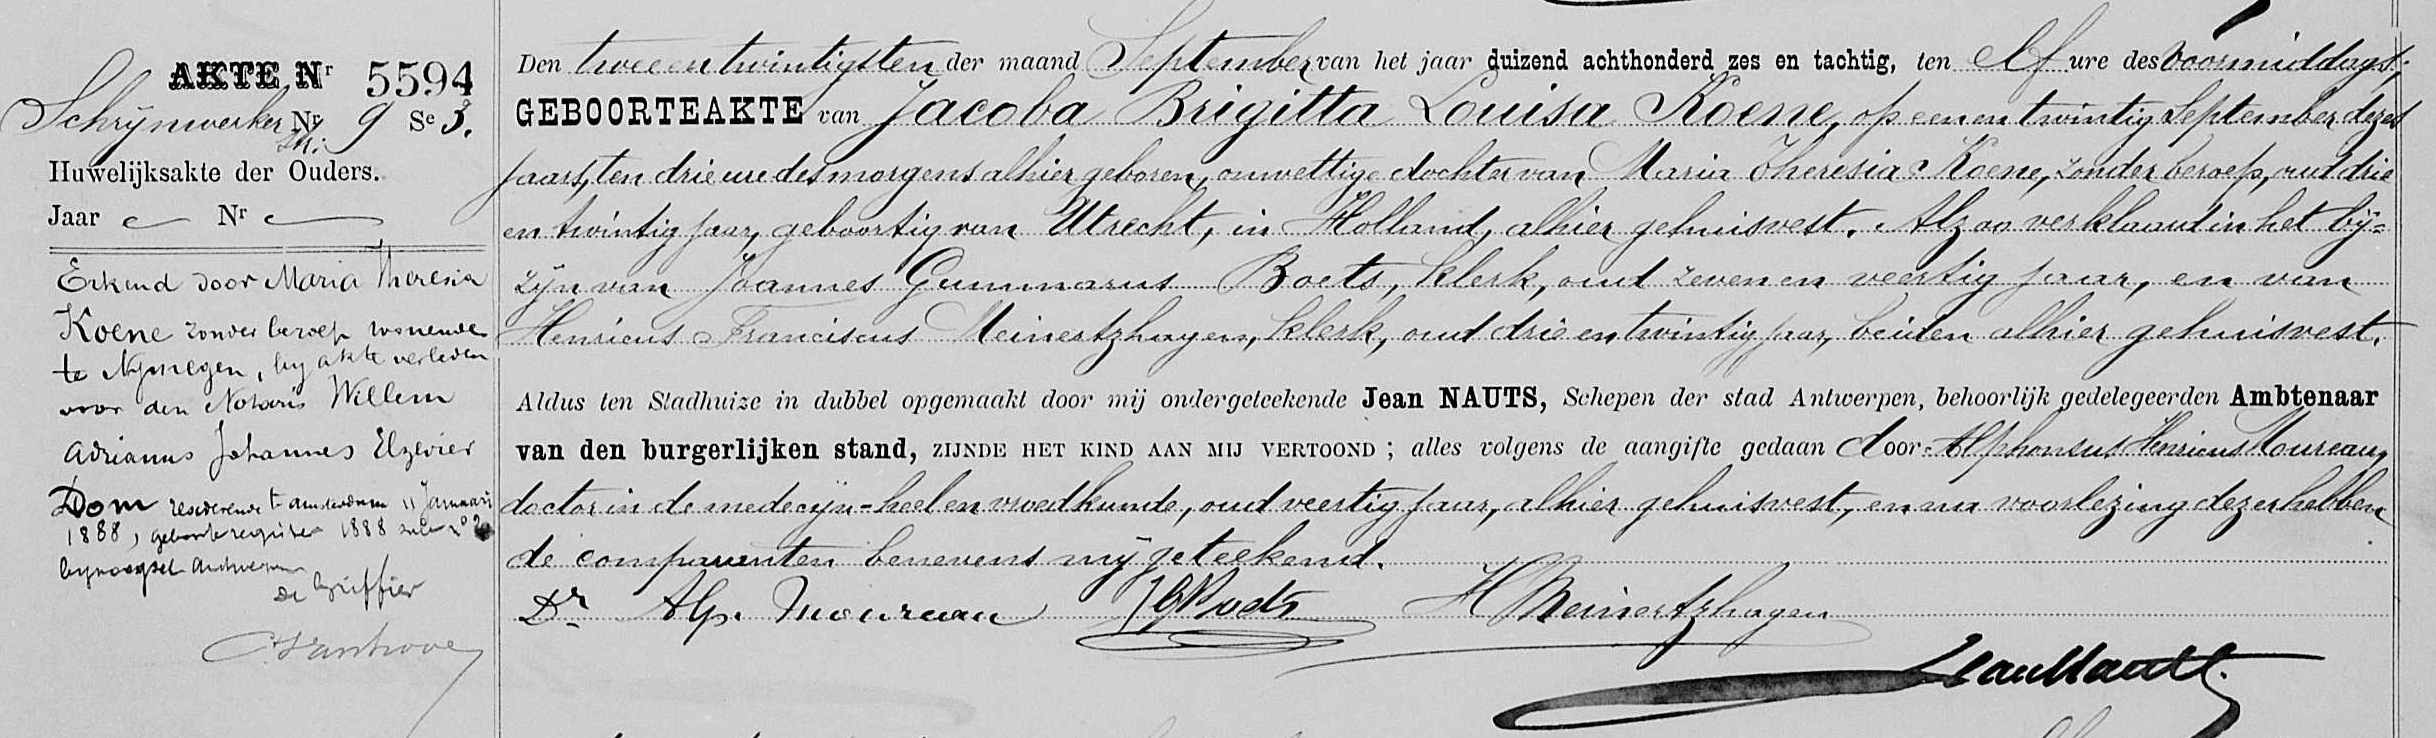 AKTE Nr 5594
Schrijnwerker
Nr 9 Se 3.
Huwelijksakte der Ouders.
Jaar Nr
Erkend door Maria Theresia
Koene zonder beroep wonende
te Nijmegen, bij akte verleden
voor den Notaris Willem
Adrianus Johannes Elzevier
Dom resideerende te Amsterdam 11 Januari
1888, geboorteregister 1888
bijvoegsel Antwerpen
De Griffier
Den twee en twintigsten der maand September van het jaar duizend achthonderd zes en tachtig, ten Elf ure des voormiddags.
GEBOORTEAKTE van Jacoba Brigitta Louisa Koene, op een en twintig September dezes
jaars, ten drie ure des morgens alhier geboren, onwettige dochter van Maria Theresia Koene, zonder beroep, oud drie
en twintig jaar, geboortig van Utrecht, in Holland, alhier gehuisvest. Alzoo verklaard in het bij=
zijn van Joannes Gummarus Boets, klerk, oud zeven en veertig jaar, en van
Henricus Franciscus Meinertzhagen, klerk, oud drie en twintig jaar, beiden alhier gehuisvest.
Aldus ten Stadhuize in dubbel opgemaakt door mij ondergeteekende Jean NAUTS, Schepen der stad Antwerpen, behoorlijk gedelegeerden Ambtenaar
van den burgerlijken stand, ZIJNDE HET KIND AAN MIJ VERTOOND ; alles volgens de aangifte gedaan door Alphonsus Henricus Moureau,
doctor in de medecijn-heel en vroedkunde, oud veertig jaar, alhier gehuisvest, en na voorlezing dezer hebben
de comparanten benevens mij geteekend.
Dr Alp. Moureau JGBoets HMeinertzhagen
Jean Nauts.